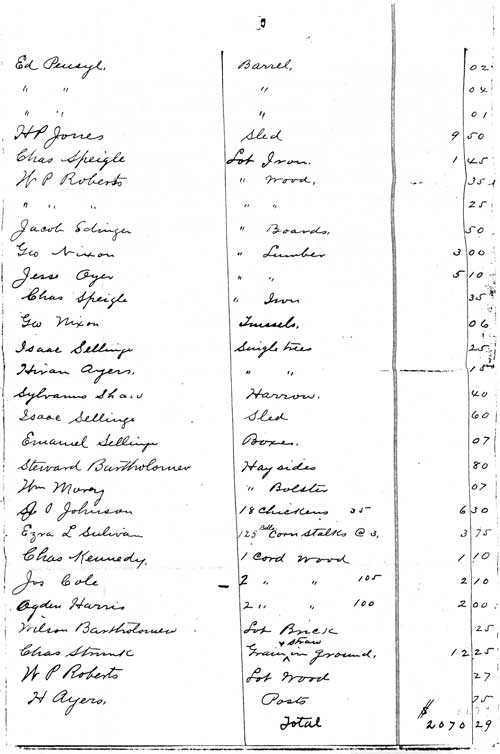 Ed Pensyl, Barrel, 02
" " " 04
" " " 01
HP Jones Sled 9 50
Chas Speigle Lot Iron. 1 45
W P Roberts " Wood, 35
" " " " " 25
Jacob Edinger " Boards, 50
Geo Nixon " Lumber 3 00
Jesse Oyer " " 5 10
Chas Speigle " Iron 35
Geo Nixon Trussels, 06
Isaac Sellinge Singletrees 25
Hiram Ayers, " " 15
Sylvanus Shaw Harrow. 40
Isaac Sellinge Sled 60
Emanuel Sellinge Boxes. 07
Steward Bartholomew Hay sides 80
Wm Morey " Bolster 07
O Johnson 18 Chickens 35 6 30
Ezra L Sulivan 125 Bdls Corn Stalks @ 3, 3 75
Chas Kennedy, 1 Cord Wood 1 10
Jos Cole 2 " " 105 2 10
Ogden Harris 2 " " 100 2 00
Wilson Bartholomew Lot Brick 25
Chas Strunk Grain + straw in ground, 12 25
W P Roberts Lot Wood 27
H Ayers, Posts 75
Total $2070 29